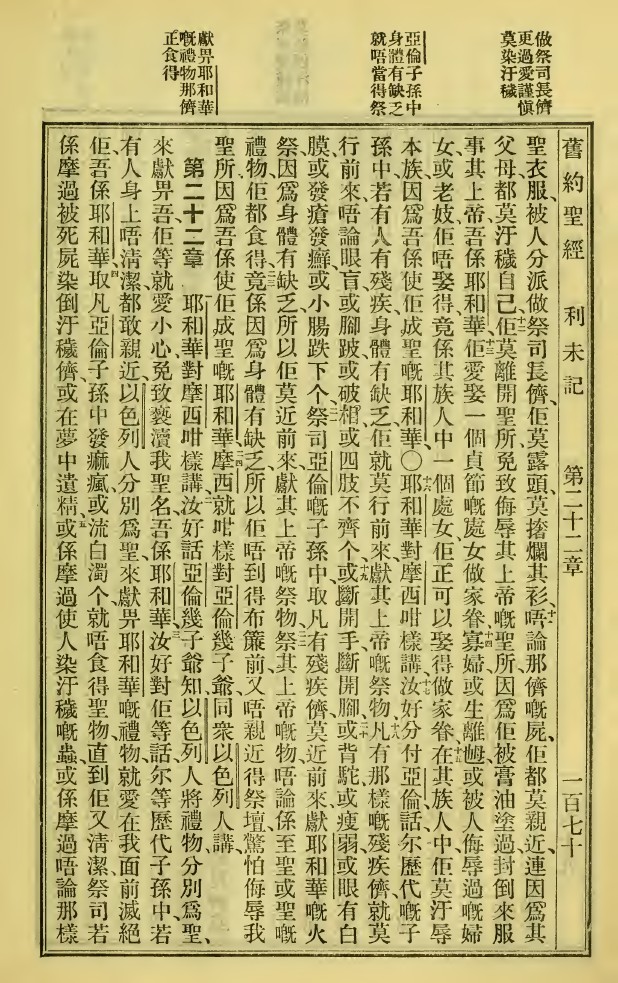 做祭司長儕
更過愛謹慎
莫染汙穢
亞倫子孫中
身體有缺乏
就唔當得祭
獻畀耶和華
嘅禮物那儕
正食得
舊約聖經 利未記 第二十二章 一百七十
聖衣服、被人分派做祭司長儕、佢莫露頭、莫撦爛其衫、十一唔論那儕嘅屍、佢都莫親近、連因爲其
父母都莫汙穢自己、十二佢莫離開聖所、免致侮辱其上帝嘅聖所、因爲佢被膏油塗過、封倒來服
事其上帝、吾係耶和華、十三佢愛娶一個貞節嘅處女做家眷、十四寡婦或生離𡞵或被人侮辱過嘅婦
女、或老妓、佢唔娶得、竟係其族人中一個處女、佢正可以娶得做家眷、十五在其族人中佢莫汙辱
本族、因爲吾係使佢成聖嘅耶和華、〇十六耶和華對摩西咁樣講、十七汝好分付亞倫話、尔歷代嘅子
孫中、若有人有殘疾、身體有缺乏、佢就莫行前來、獻其上帝嘅祭物、十八凡有那樣嘅殘疾儕就莫
行前來、唔論眼盲、或腳跛、或破相、或四肢不齊个、十九或斷開手、斷開腳、二十或背駝、或瘦弱、或眼有白
膜、或發瘡發癬、或小腸跌下个、二一祭司亞倫嘅子孫中、取凡有殘疾儕、莫近前來、獻耶和華嘅火
祭、因爲身體有缺乏、所以佢莫近前來獻其上帝嘅祭物、二二祭其上帝嘅物、唔論係至聖或聖嘅
禮物、佢都食得、二三竟係因爲身體有缺乏、所以佢唔到得布簾前、又唔親近得祭壇、驚怕侮辱我
聖所、因爲吾係使佢成聖嘅耶和華、二四摩西就咁樣對亞倫幾子爺、同衆以色列人講、
第二十二章 耶和華對摩西咁樣講、二汝好話亞倫幾子爺知、以色列人將禮物分別爲聖、
來獻畀吾、佢等就愛小心、免致褻瀆我聖名、吾係耶和華、三汝好對佢等話、尔等歷代子孫中、若
有人身上唔清潔、都敢親近以色列人分別爲聖、來獻畀耶和華嘅禮物、就愛在我面前滅絕
佢、吾係耶和華、四取凡亞倫子孫中發痲瘋、或流白濁个、就唔食得聖物、直到佢又清潔、祭司若
係摩過被死屍染倒汙穢儕、或在夢中遺精、五或係摩過使人染汙穢嘅蟲、或係摩過唔論那樣